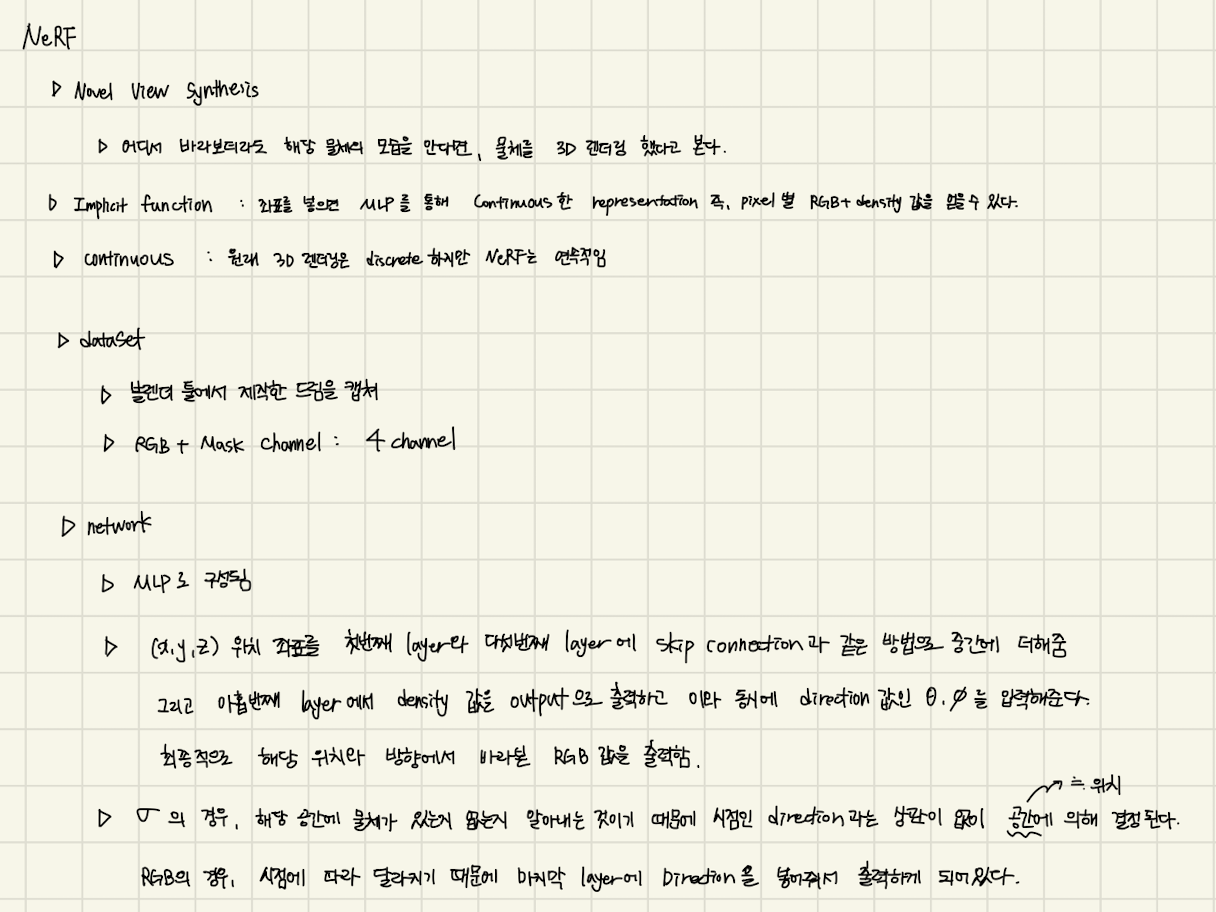 NeRF
▷ Novel View Synthesis
▷ 어디서 바라보더라도 해당 물체의 모습을 안다면, 물체를 3D 렌더링 했다고 본다.
▷ Implicit function : 좌표를 넣으면 MLP를 통해 Continuous한 representation 즉, pixel 별 RGB+density 값을 얻을 수 있다.
▷ continuous : 원래 3D 렌더링은 discrete 하지만 NeRF는 연속적임
▷ dataset
▷ 블렌더 툴에서 제작한 드림을 캡쳐
▷ RGB + Mask Channel : 4 channel
▷ network
▷ MLP로 구성됨
▷ (x,y,z) 위치 좌표를 첫번째 layer와 다섯번째 layer에 skip connection과 같은 방법으로 중간에 더해줌
그리고 아홉번째 layer에서 density 값을 output으로 출력하고 이와 동시에 direction 값인 θ, ∅를 입력해준다.
최종적으로 해당 위치와 방향에서 바라본 RGB 값을 출력함.
≒ 위치
▷ σ의 경우, 해당 공간에 물체가 있는지 없는지 알아내는 것이기 때문에 시점인 direction과는 상관이 없이 공간에 의해 결정된다.
RGB의 경우, 시점에 따라 달라지기 때문에 마지막 layer에 Direction을 넣어줘서 출력하게 되어있다.